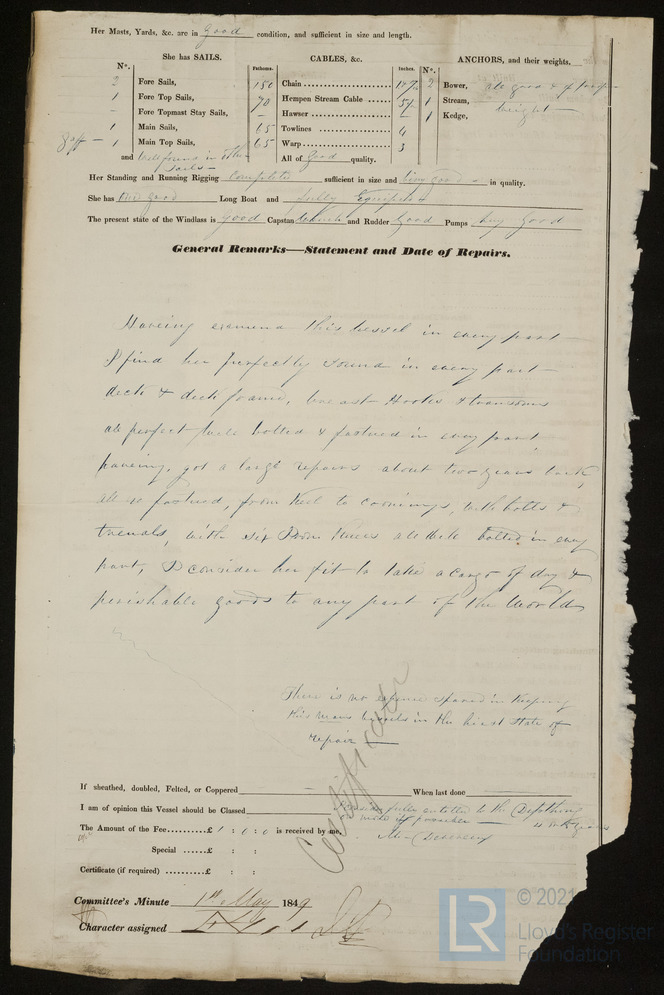 Her Masts, Yards, &c. are in Good condition, and sufficient in size and length.
She has SAILS. CABLES, &c. ANCHORS, and their weights.
N°. Fathoms. Inches. N°.
2 Fore Sails, 150 Chain 2 Bower, all good & of proper
1 Fore Top Sails, 70 Hempen Stream Cable 1 Stream, weight
Fore Topmast Stay Sails, – Hawser – 1 Kedge,
1 Main Sails, 65 Towlines 4
Gaff – 1 Main Top Sails, 65 Warp 3
and well found in other Sails All of Good quality.
Her Standing and Running Rigging Complete sufficient in size and very good in quality.
She has One good Long Boat and fully Equiped
The present state of the Windlass is good Capstan and Rudder Good Pumps very Good
General Remarks—Statement and Date of Repairs.
Haveing this vessel in every part
I find her perfectly sound in every part
deck & deck frame, breast Hooks & transoms
all perfect well bolted & fastned in every part
haveing, got a large repairs about two years back,
all fastned, from Keel to with bolts &
trenals, with six Iron Knees all well bolted in every
part, I consider her fit to take a cargo of dry &
perishable goods to any part of the World
There is no expence spared in Keeping
this mans vessels in the best state of
repair —
Certificate
If sheathed, doubled, Felted, or Coppered When last done
I am of opinion this Vessel should be Classed fully entitled to the
The Amount of the Fee.........£ 1 : 0 : 0 is received by me,
Special ......£ : :
Certificate (if required) .......£ : :
Committee's Minute 1st May 1849
Character assigned
LR
© 2021
Lloyd's Register
Foundation